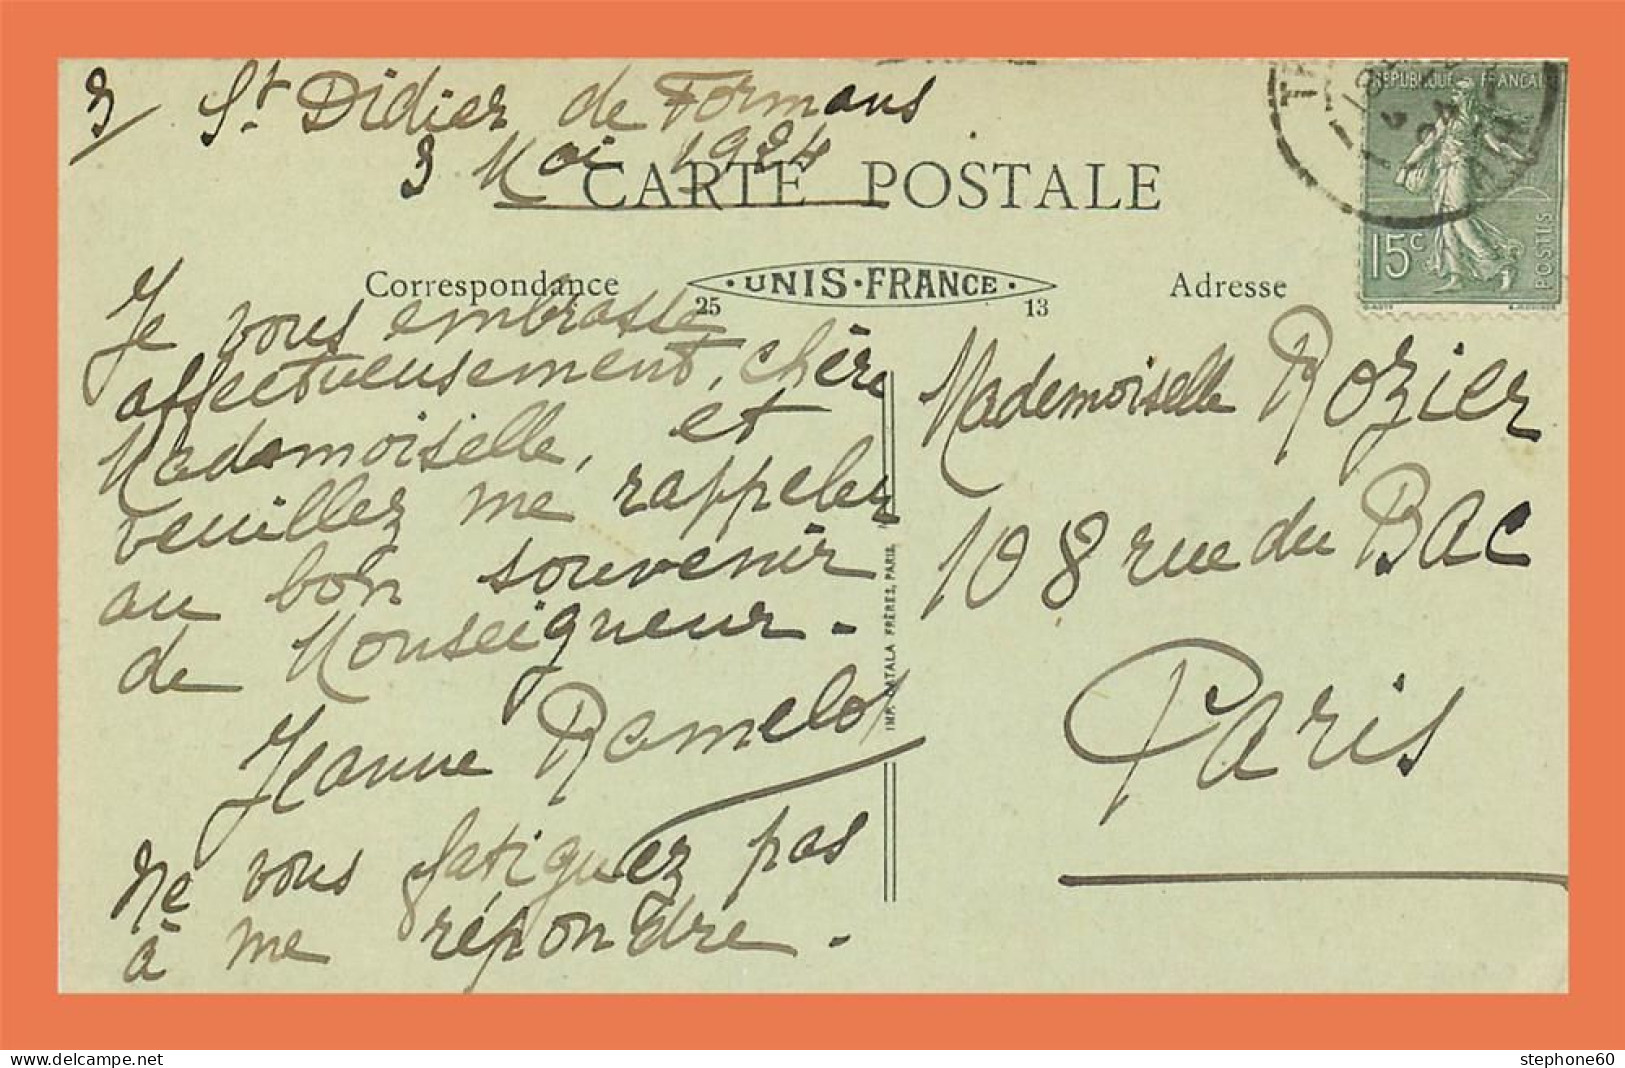 3/ St Didier de Formans
3 Mai 1924
CARTE POSTALE
RÉPUBLIQUE FRANÇAISE
15c
POSTES
Correspondance
UNIS·FRANCE
25 13
Adresse
Je vous embrasse
affectueusement, chère
Mademoiselle, et
veuillez me rappeler
au bon souvenir
de Monseigneur.
Jeanne Ramelot
Ne vous fatiguez pas
à me répondre.
IMP. CATALA FRÈRES, PARIS
Mademoiselle Rozier
108 rue du BAC
Paris
stephone60